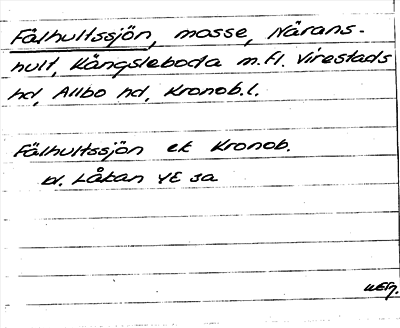 Fälhultssjön, mosse, Närans-
hult, Kångsleboda m.fl. Virestads
hd, Allbo hd, Kronob.l.
Fälhultssjön ek Kronob.
bl. Låkan 4E sa